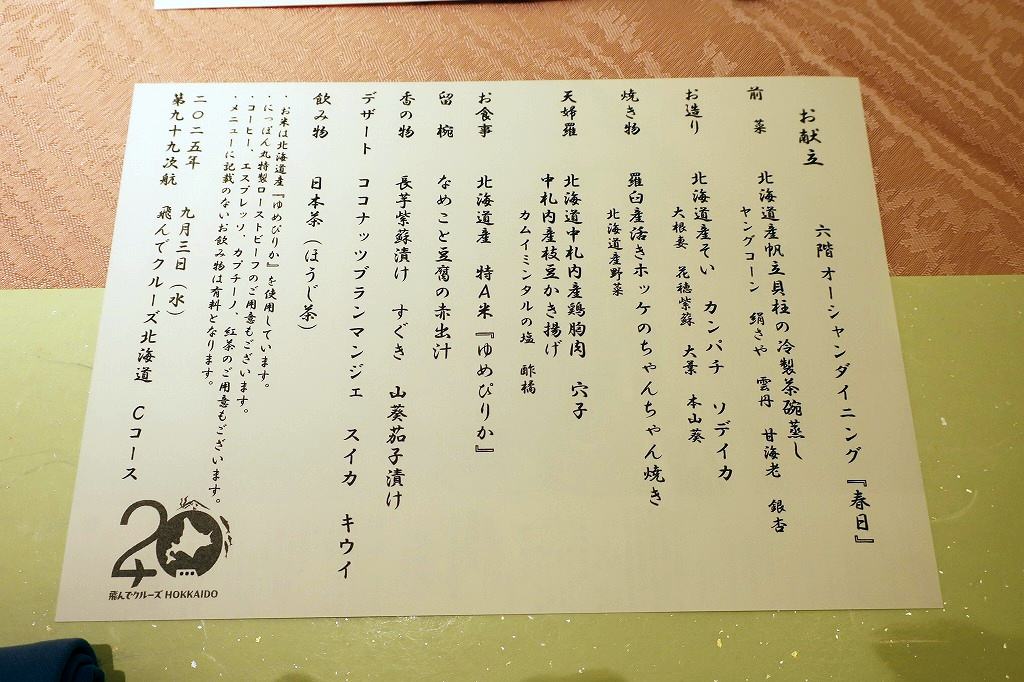 六階 オーシャンダイニング『春日』
お献立
前菜 北海道産帆立貝柱の冷製茶碗蒸し
ヤングコーン 絹さや 雲丹 甘海老 銀杏
お造り 北海道産そい カンパチ ソデイカ
大根妻 花穂紫蘇 大葉 本山葵
焼き物 羅臼産活きホッケのちゃんちゃん焼き
北海道産野菜
天婦羅 北海道中札内産鶏胸肉 穴子
中札内産枝豆かき揚げ
カムイミンタルの塩 酢橘
お食事 北海道産 特A米『ゆめぴりか』
留椀 なめこと豆腐の赤出汁
香の物 長芋紫蘇漬け すぐき 山葵茄子漬け
デザート ココナッツブランマンジェ スイカ キウイ
飲み物 日本茶（ほうじ茶）
・お米は北海道産『ゆめぴりか』を使用しています。
・にっぽん丸特製ローストビーフのご用意もございます。
・コーヒー、エスプレッソ、カプチーノ、紅茶のご用意もございます。
・メニューに記載のないお飲み物は有料となります。
二〇二五年 九月三日（水）
第九十九次航 飛んでクルーズ北海道 Cコース
20
飛んでクルーズ HOKKAIDO